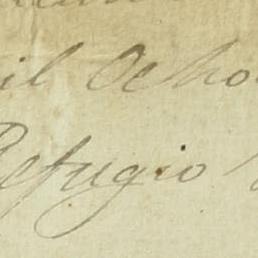 il Ocho
Refugio